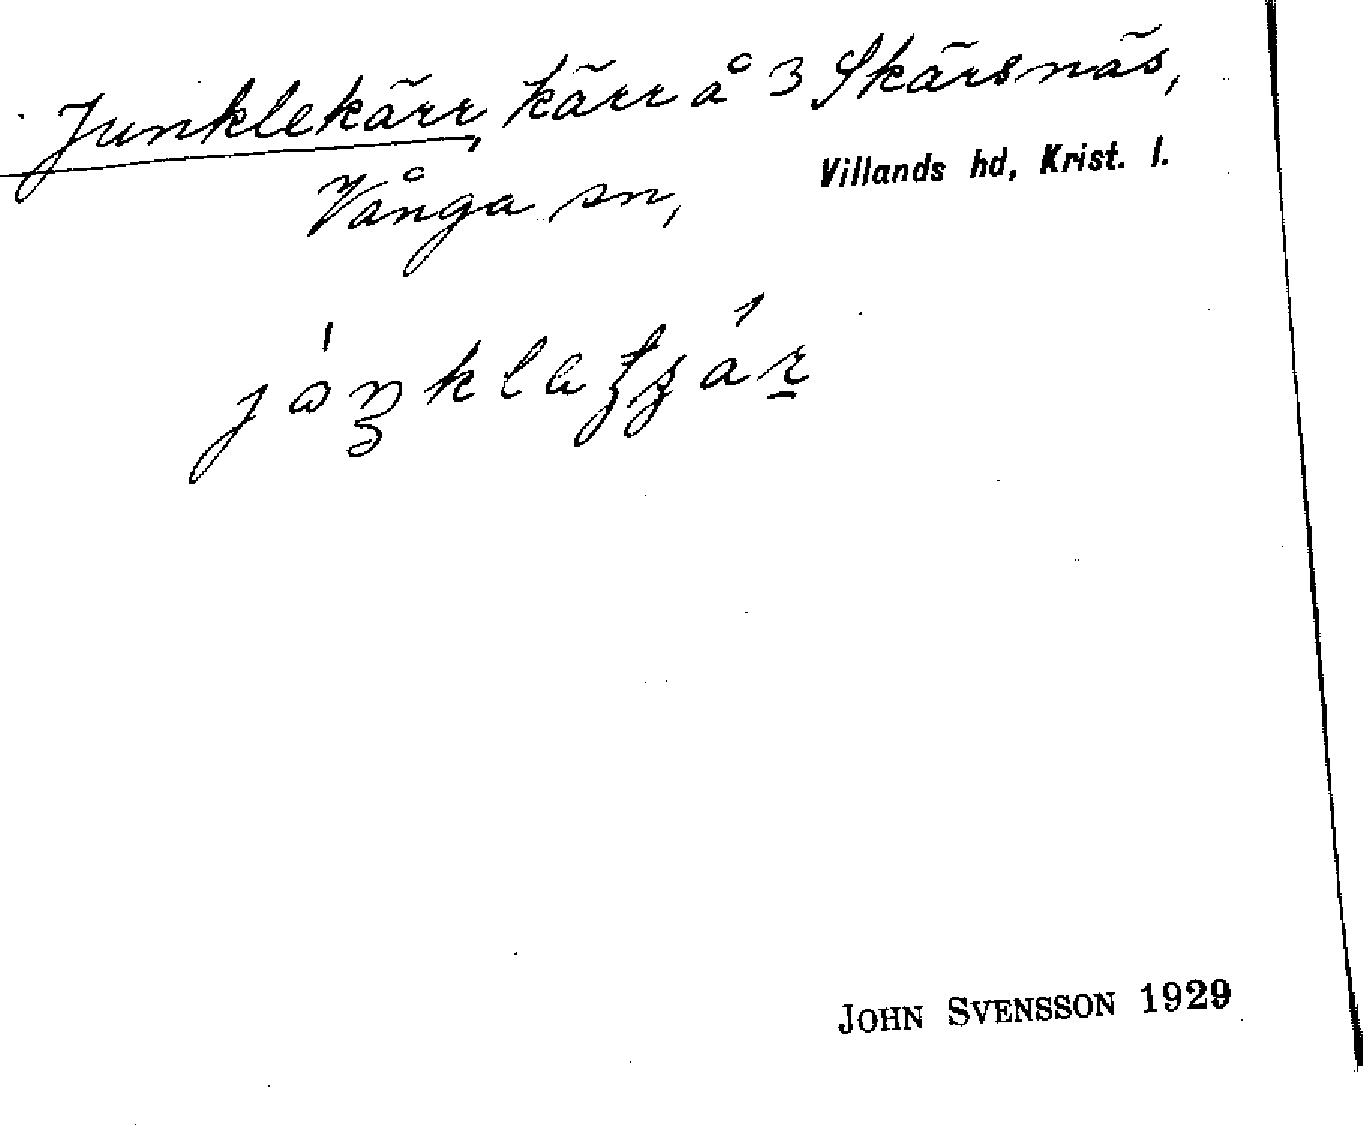 Junklekärr, kärr å 3 Skärsnäs,
Villands hd, Krist. l.
Vånga sn,
JOHN SVENSSON 1929